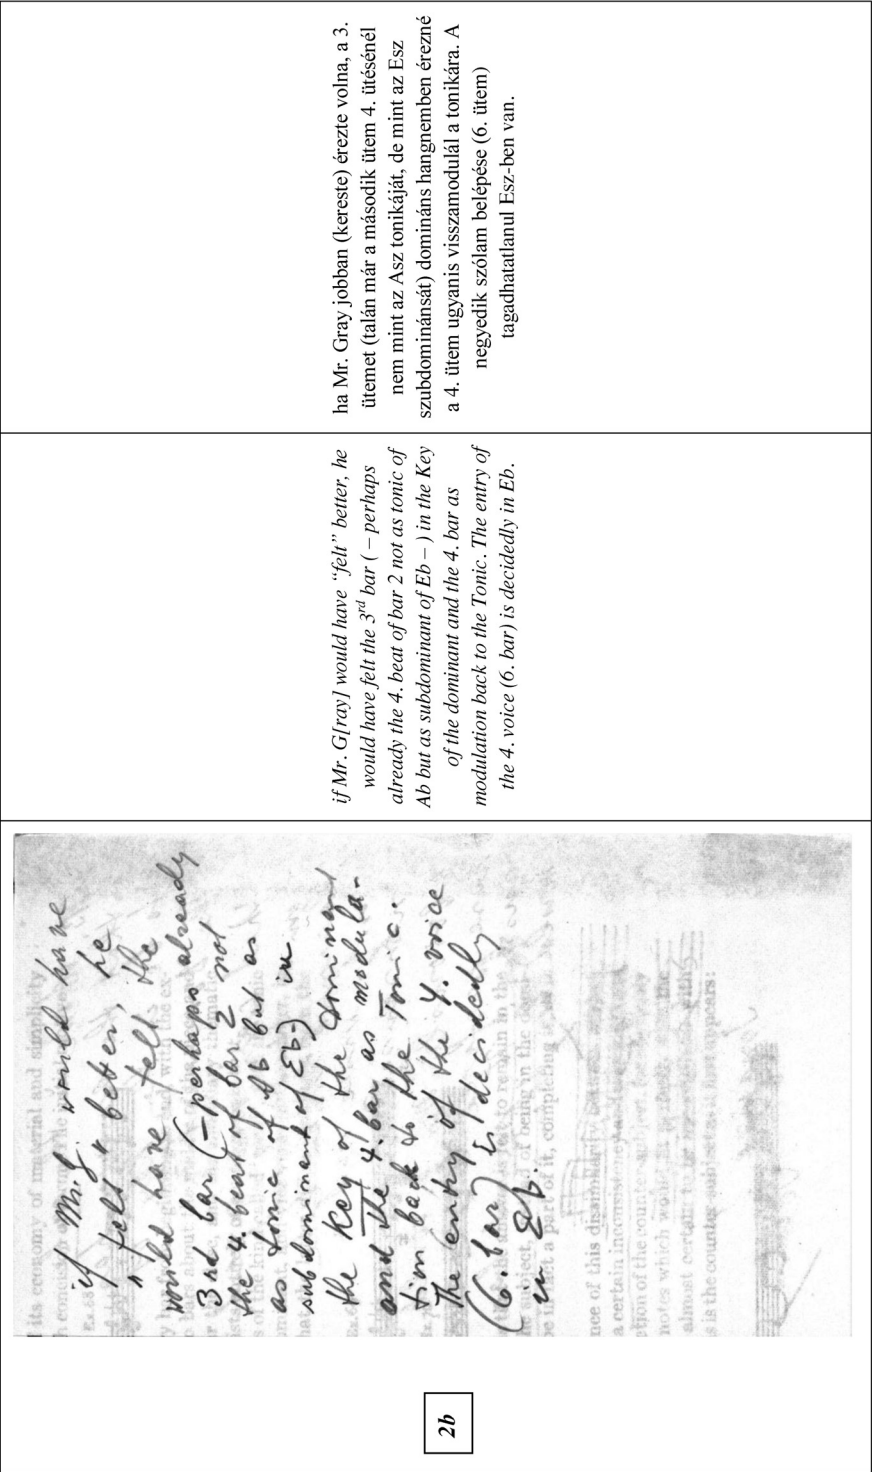 2b
its economy of material and simplicity
if Mr. G. would have
"felt" better, he
would have felt the
3rd bar (– perhaps already
the 4. beat of bar 2 not
as tonic of Ab but as
subdominant of Eb–) in
the Key of the dominant
and the 4. bar as modula-
tion back to the Tonic.
The entry of the 4. voice
(6. bar) is decidedly
in Eb.
a part of it, completing
nce of this
a certain
notes which
almost certain
s is the counter-subject as it first appears:
if Mr. G[ray] would have “felt” better, he
would have felt the 3rd bar ( – perhaps
already the 4. beat of bar 2 not as tonic of
Ab but as subdominant of Eb – ) in the Key
of the dominant and the 4. bar as
modulation back to the Tonic. The entry of
the 4. voice (6. bar) is decidedly in Eb.
ha Mr. Gray jobban (kereste) érezte volna, a 3.
ütemet (talán már a második ütem 4. ütésénél
nem mint az Asz tonikáját, de mint az Esz
szubdominánsát) domináns hangnemben érezné
a 4. ütem ugyanis visszamodulál a tonikára. A
negyedik szólam belépése (6. ütem)
tagadhatatlanul Esz-ben van.